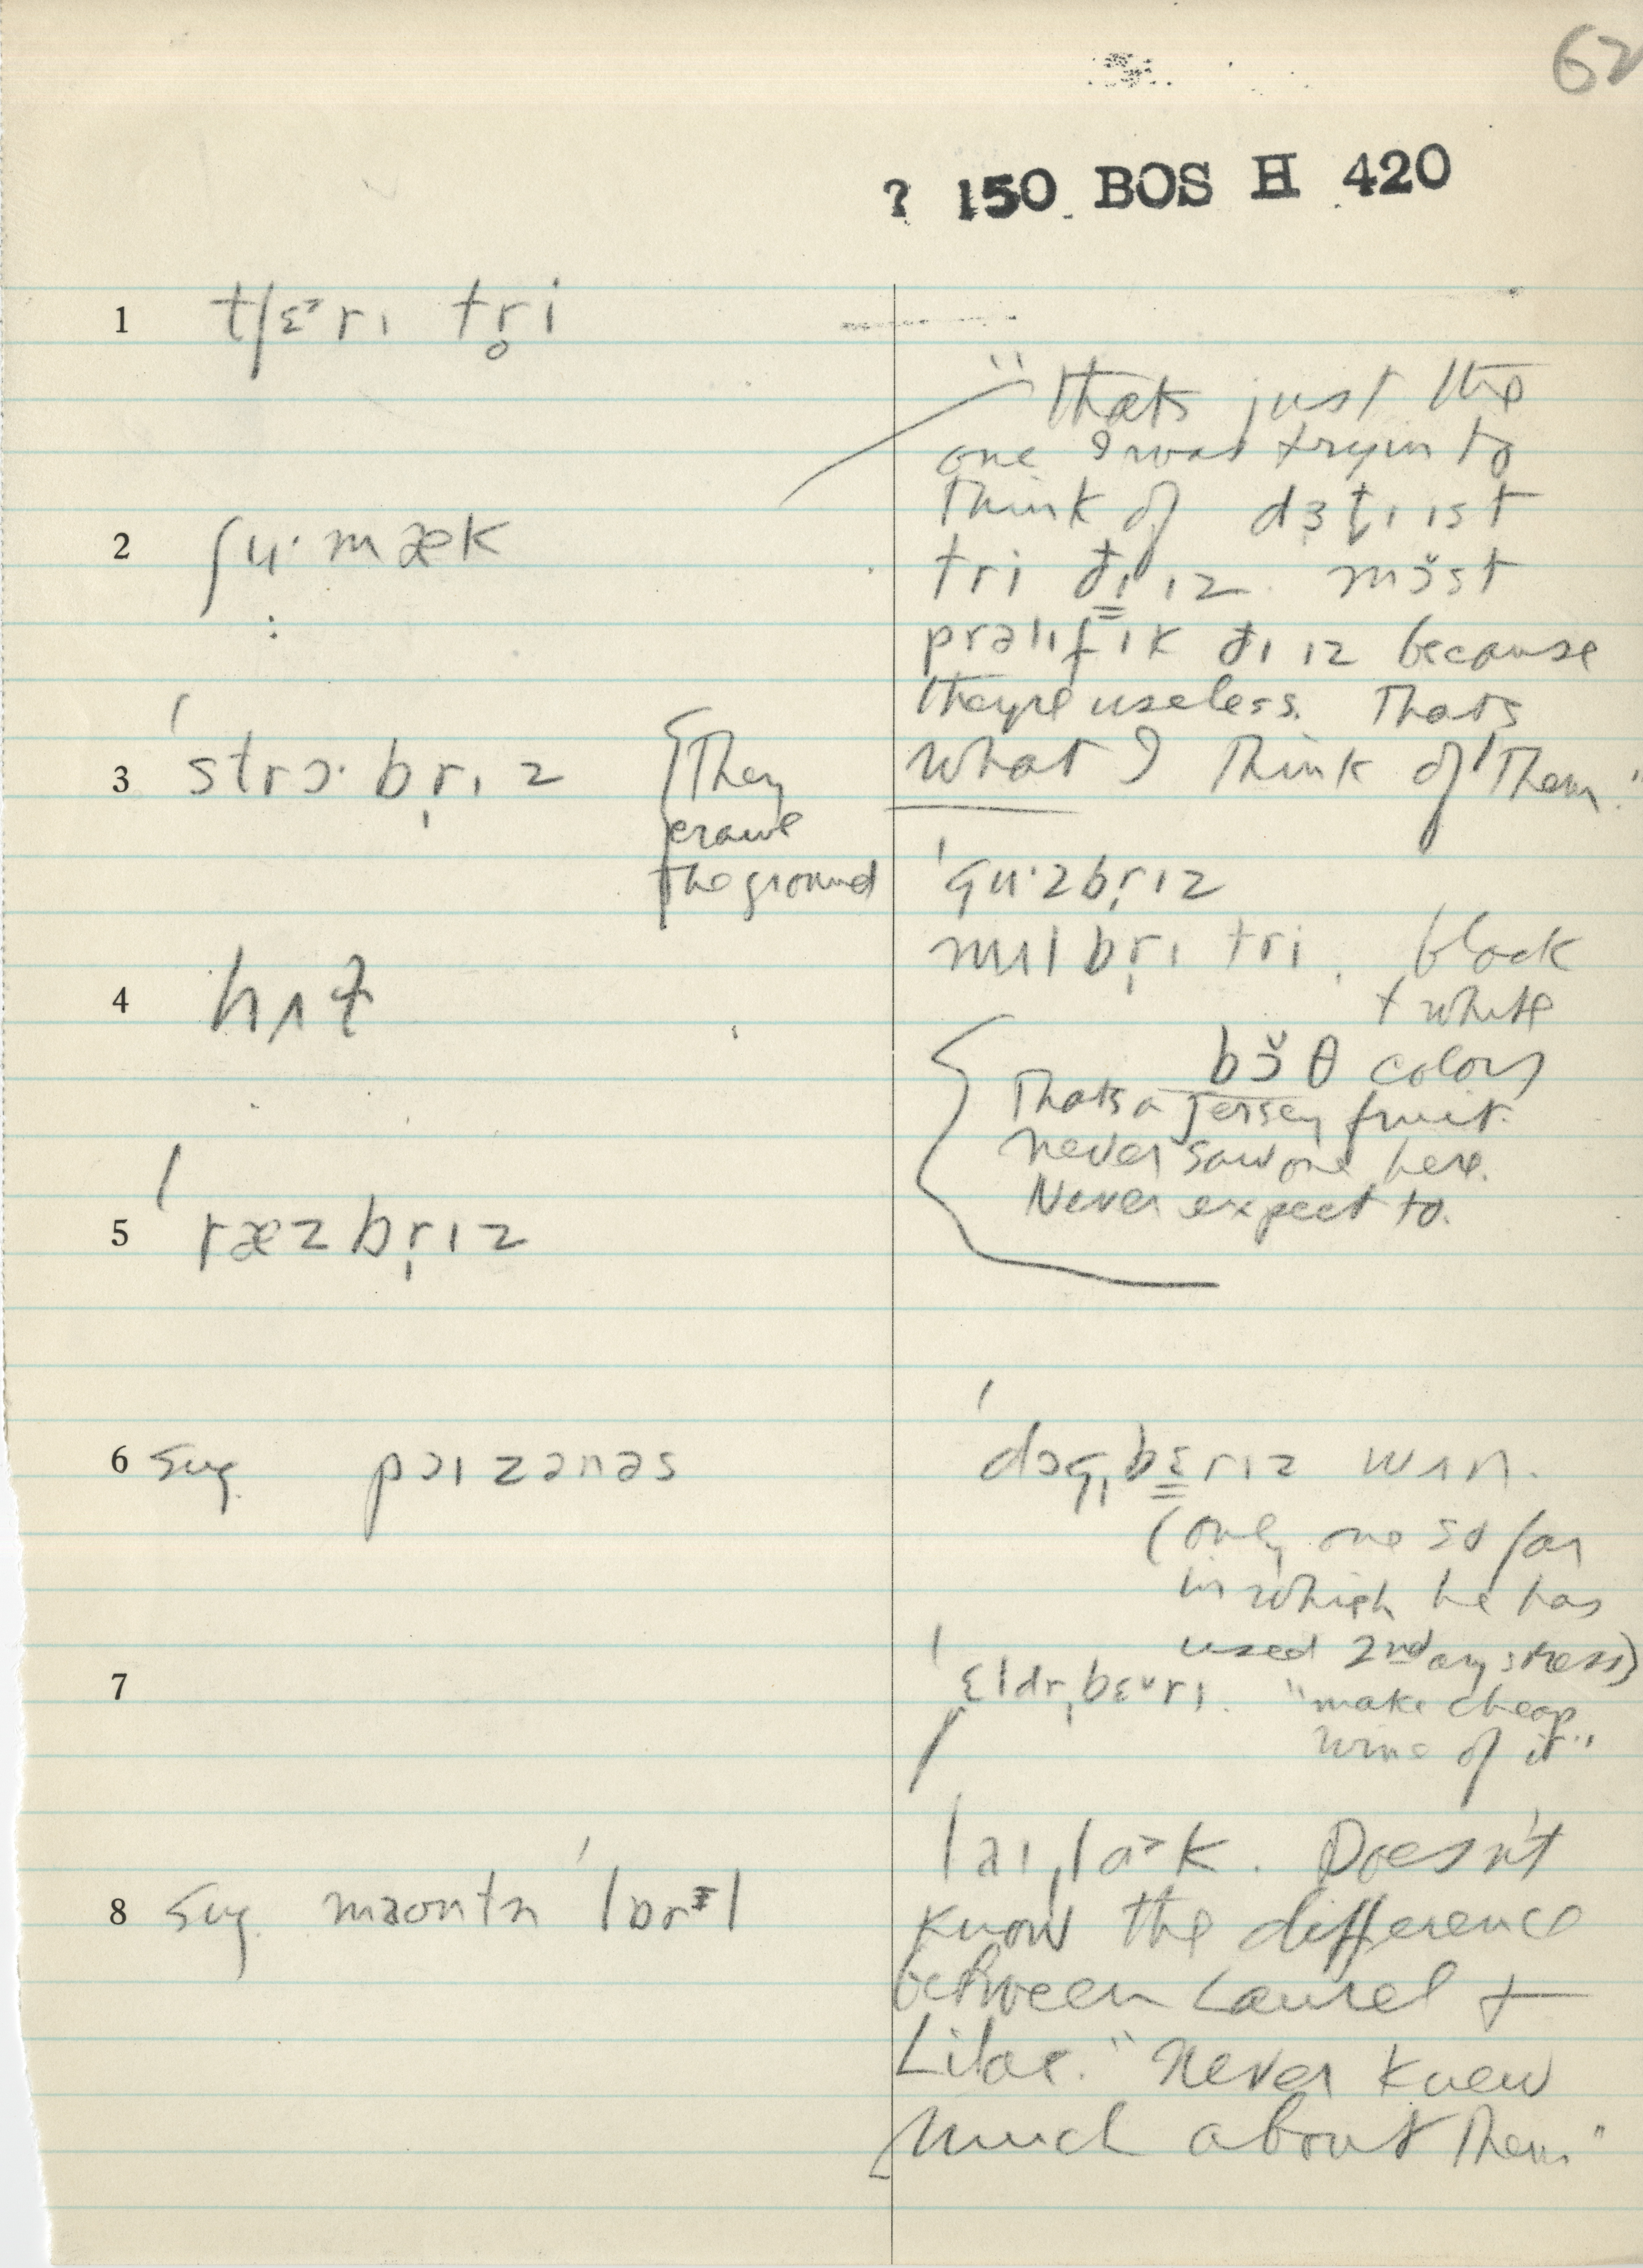 62
? 150 BOS H 420
1 tʃɛ˃rɪ tr̥i
2 ʃʉ·mæk
3 ˈstrɔ·br̩ɪz
{They
crawl
the ground
4 hʌt̬
5 ˈræzbr̩ɪz
6 sug. pɔɪzənəs
7
8 sug. maʊntn ˈlɒrɪl
"Thats just the
one I was tryin to
think of dɜt̬ɪɪst
tri ðɪ ɪz. mɔ̆st
prəlɪfɪk ðɪ ɪz because
they're useless. Thats
what I think of them."
ˈgʉ·zbr̩ɪz
mʌlbr̩ɪ tri. black
+ white
bɔ̆θ colors
Thats a Jersey fruit.
Never saw one here.
Never expect to.
ˈdɔgˌbɛrɪz wʌn.
(only one so far
in which he has
used 2ndary stress)
ˈɛldrˌbɛ˅rɪ. "make cheap
wine of it"
laɪˌlɑ˃k. Doesn't
know the difference
between Laurel +
Lilac. "Never knew
much about them"